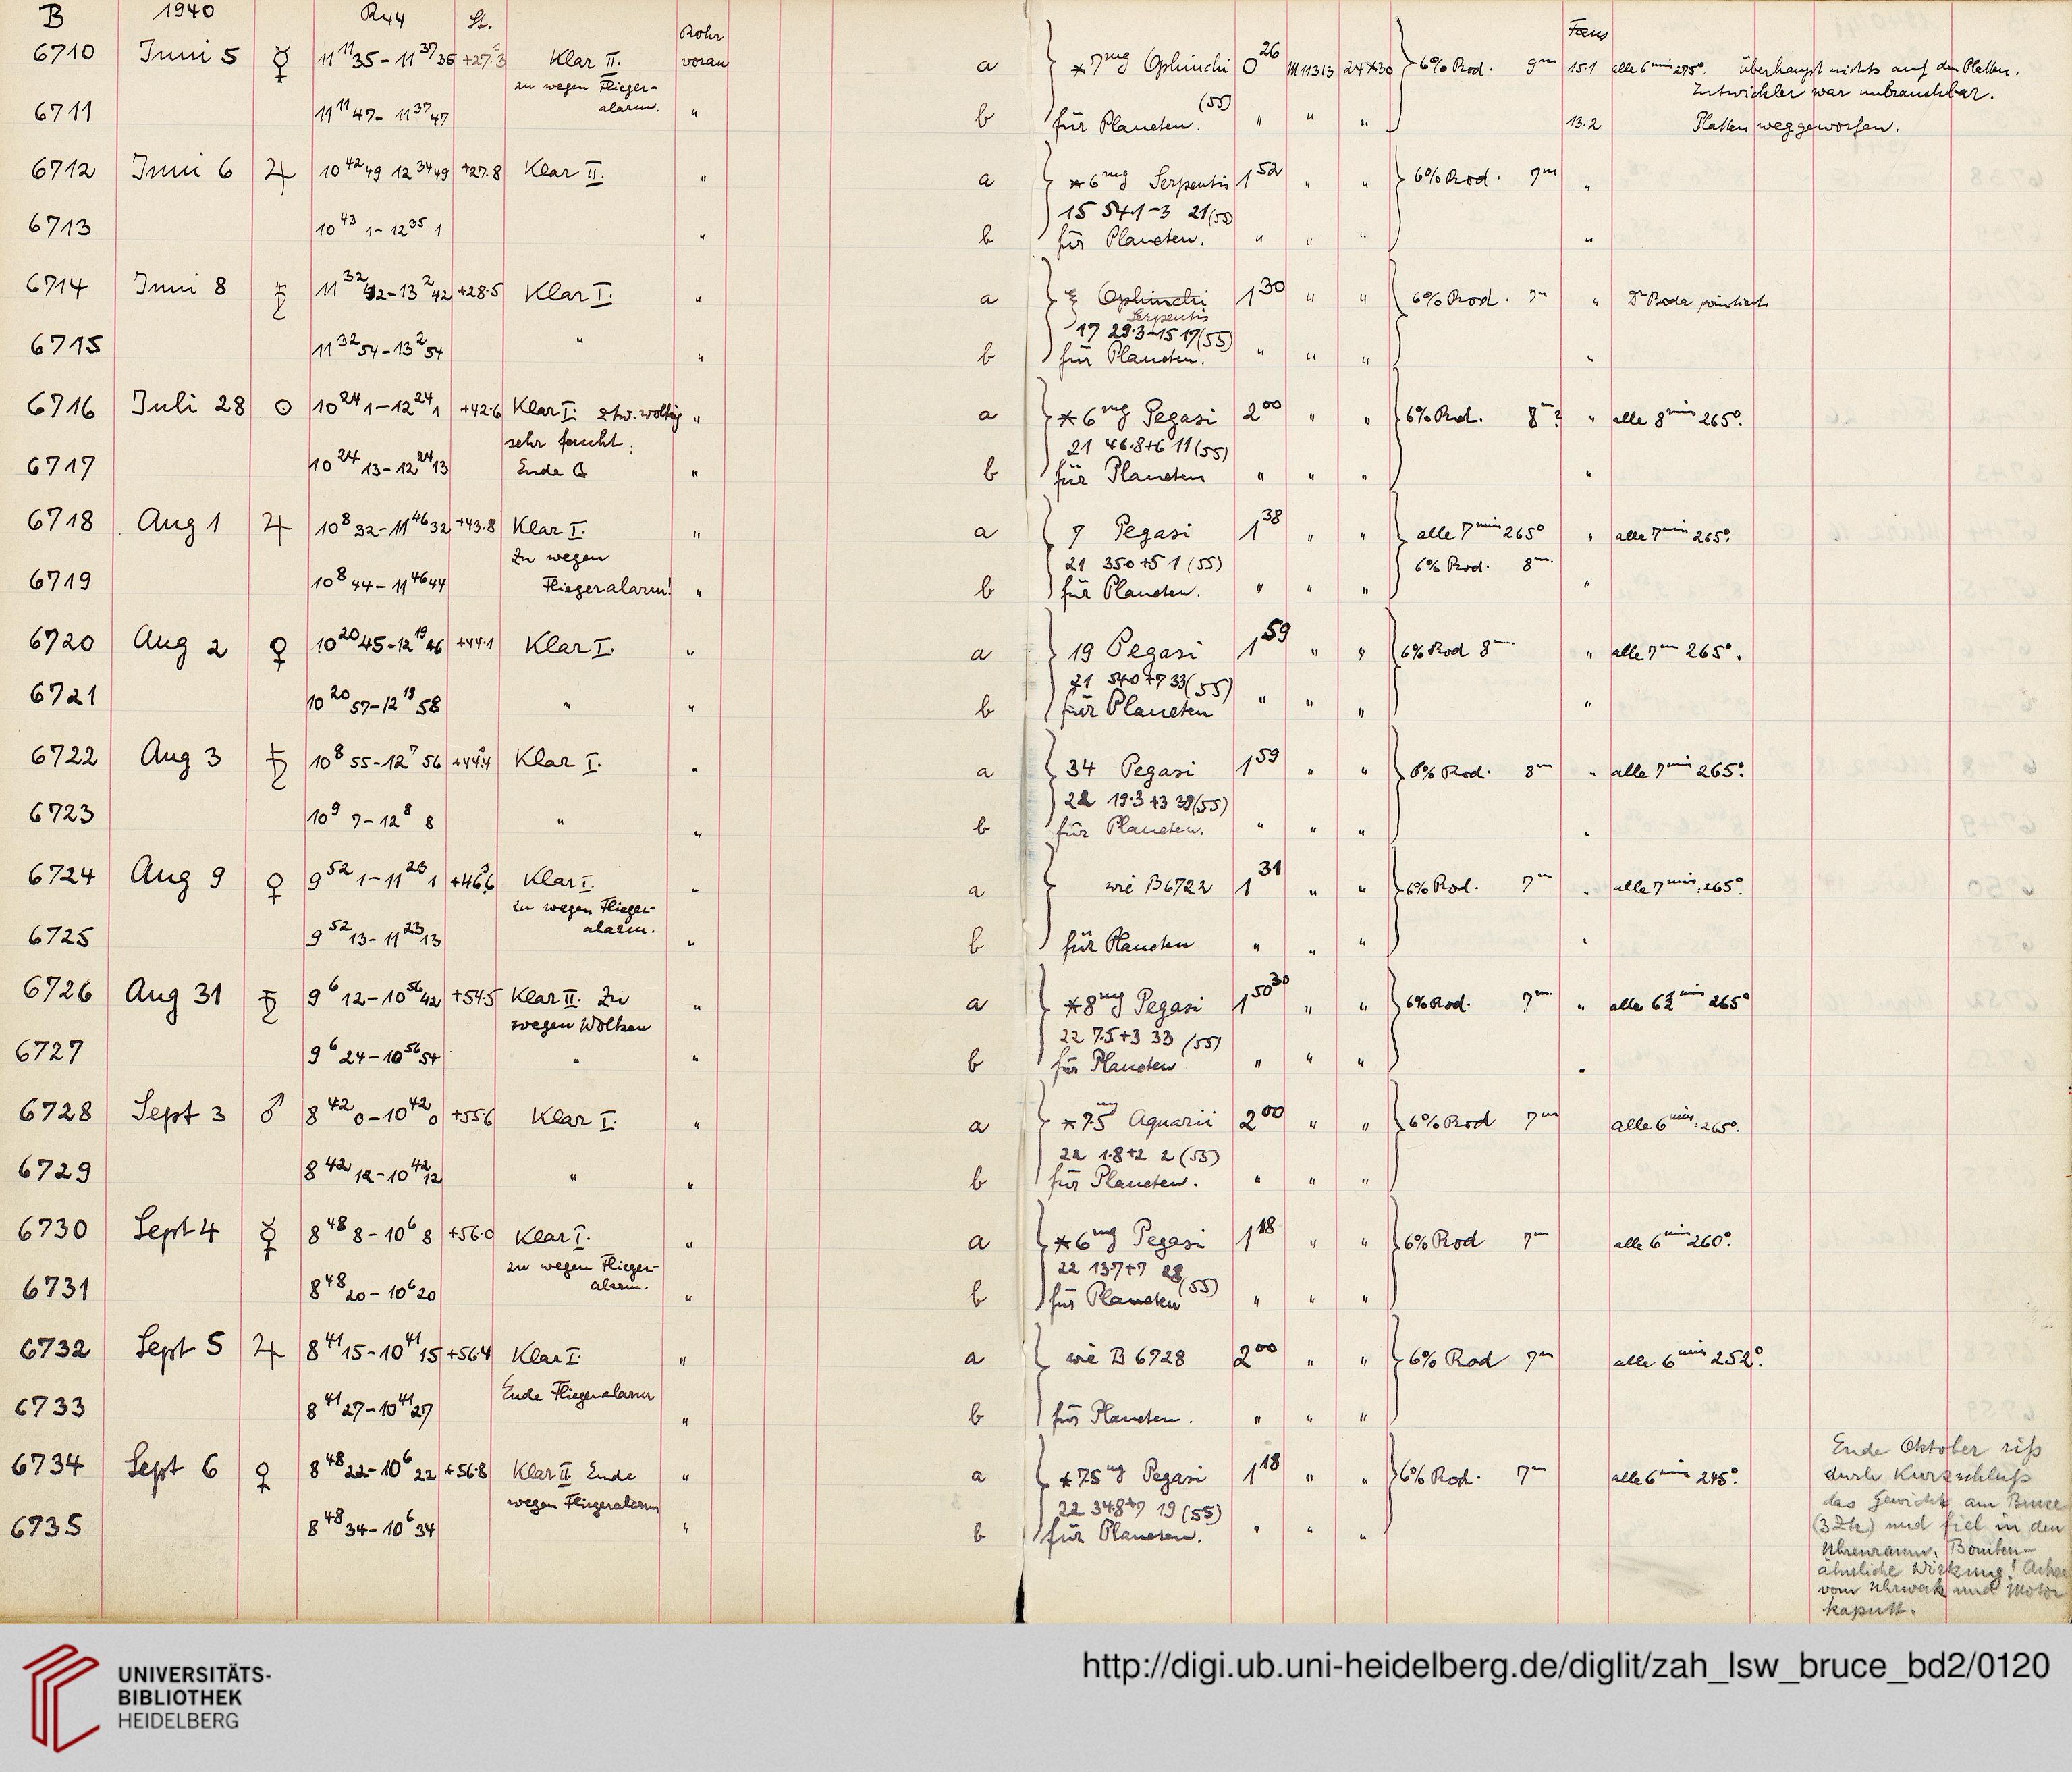 B 1940 R44 St. Rohr Focus
6710 Juni 5 ☿ 11^11 35 - 11^37 35 +27.3 Klar II. voran a *7mg Ophiuchi 0^26 M11313 24×30 6% Rod. 9m 15.1 alle 6min 275°. Überhaupt nichts auf den Platten.
zu wegen Flieger- Entwickler war unbrauchbar.
6711 11^11 47 - 11^37 47 alarm. " b für Planeten. (55) " " " 13.2 Platten weggeworfen.
6712 Juni 6 ♃ 10^42 49 12^34 49 +27.8 Klar II. " a *6mg Serpentis 1^52 " " 6% Rod. 7m "
15 54.1 -3 21 (55)
6713 10^43 1 - 12^35 1 " b für Planeten. " " " "
6714 Juni 8 ♄ 11^32 42 - 13^2 42 +28.5 Klar I. " a ξ Ophiuchi 1^30 " " 6% Rod. 7m " Dr Boda
Serpentis
17 29.3 -15 17 (55)
6715 11^32 54 - 13^2 54 " " b für Planeten. " " " "
6716 Juli 28 ☉ 10^24 1 - 12^24 1 +42.6 Klar I. etw. wolkig " a *6mg Pegasi 2^00 " " 6% Rod. 8m? " alle 8min 265°.
sehr feucht. 21 46.8 +6 11 (55)
6717 10^24 13 - 12^24 13 Ende " b für Planeten " " " "
6718 Aug 1 ♃ 10^8 32 - 11^46 32 +43.8 Klar I. " a 7 Pegasi 1^38 " " alle 7min 265° " alle 7min 265°.
zu wegen 21 35.0 +5 1 (55) 6% Rod. 8m.
6719 10^8 44 - 11^46 44 Fliegeralarm! " b für Planeten. " " " "
6720 Aug 2 ♀ 10^20 45 - 12^19 46 +44.1 Klar I. " a 19 Pegasi 1^59 " " 6% Rod 8m. " alle 7m 265°.
21 54.0 +7 33 (55)
6721 10^20 57 - 12^19 58 " " b für Planeten " " " "
6722 Aug 3 ♄ 10^8 55 - 12^7 56 +44.4 Klar I. " a 34 Pegasi 1^59 " " 6% Rod. 8m " alle 7min 265°.
22 19.3 +3 39 (55)
6723 10^9 7 - 12^8 8 " " b für Planeten. " " " "
6724 Aug 9 ♀ 9^52 1 - 11^23 1 +46.6 Klar I. " a wie B 6722 1^31 " " 6% Rod. 7m " alle 7min. 265°.
zu wegen Flieger-
6725 9^52 13 - 11^23 13 alarm. " b für Planeten " " " "
6726 Aug 31 ♄ 9^6 12 - 10^56 42 +54.5 Klar II. Zu " a *8mg Pegasi 1^50 30 " " 6% Rod. 7m. " alle 6½min 265°
wegen Wolken 22 7.5 +3 33 (55)
6727 9^6 24 - 10^56 54 " " b für Planeten " " " "
6728 Sept 3 ♂ 8^42 0 - 10^42 0 +55.6 Klar I. " a *7.5m Aquarii 2^00 " " 6% Rod 7m alle 6min. 265°.
22 1.8 +2 2 (55)
6729 8^42 12 - 10^42 12 " " b für Planeten. " " "
6730 Sept 4 ☿ 8^48 8 - 10^6 8 +56.0 Klar I. " a *6mg Pegasi 1^18 " " 6% Rod 7m alle 6min 260°.
zu wegen Flieger- 22 13.7 +7 28
6731 8^48 20 - 10^6 20 alarm. " b für Planeten (55) " " "
6732 Sept 5 ♃ 8^41 15 - 10^41 15 +56.4 Klar I. " a wie B 6728 2^00 " " 6% Rod 7m alle 6min 252°.
Ende Fliegeralarm
6733 8^41 27 - 10^41 27 " b für Planeten. " " "
6734 Sept 6 ♀ 8^48 22 - 10^6 22 +56.8 Klar II. Ende " a *7.5mg Pegasi 1^18 " " 6% Rod. 7m alle 6min 245°.
wegen Fliegeralarm 22 34.8 +7 19 (55)
6735 8^48 34 - 10^6 34 " b für Planeten. " " "
Ende Oktober riß
durch Kurzschluß
das Gewicht am Bruce
(3 Ztr) und fiel in den
Uhrenraum. Bomben-
ähnliche Wirkung! Achse
vom Uhrwerk und Motor
kaputt.
UNIVERSITÄTS-
BIBLIOTHEK
HEIDELBERG
http://digi.ub.uni-heidelberg.de/diglit/zah_lsw_bruce_bd2/0120